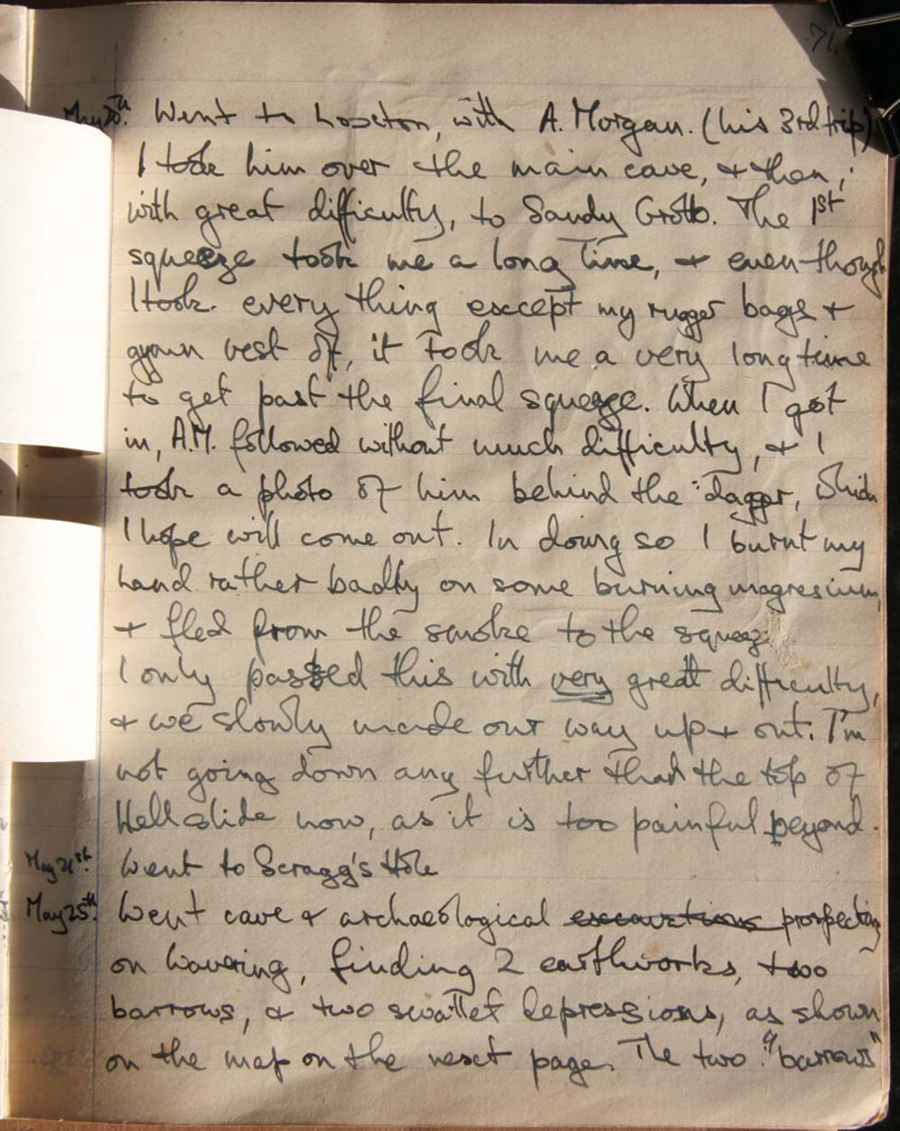 71.
May 20th. Went to Loxton, with A. Morgan. (his 3rd trip)
I took him over the main cave, & then,
with great difficulty, to Sandy Grotto. The 1st
squeeze took me a long time, & even though
I took every thing except my rugger bags &
gym vest off, it took me a very long time
to get past the final squeeze. When I got
in, A.M. followed without much difficulty, & I
took a photo of him behind the dagger, which
I hope will come out. In doing so I burnt my
hand rather badly on some burning magnesium
& fled from the smoke to the squeeze
I only passed this with very great difficulty,
& we slowly made our way up & out. I'm
not going down any further than the top of
Hell slide now, as it is too painful beyond.
May 21st. Went to Scragg's Hole
May 25th. Went cave & archaeological excavations prospecting
on Wavering, finding 2 earthworks, two
barrows, & two swallet depressions, as shown
on the map on the next page. The two "barrows"